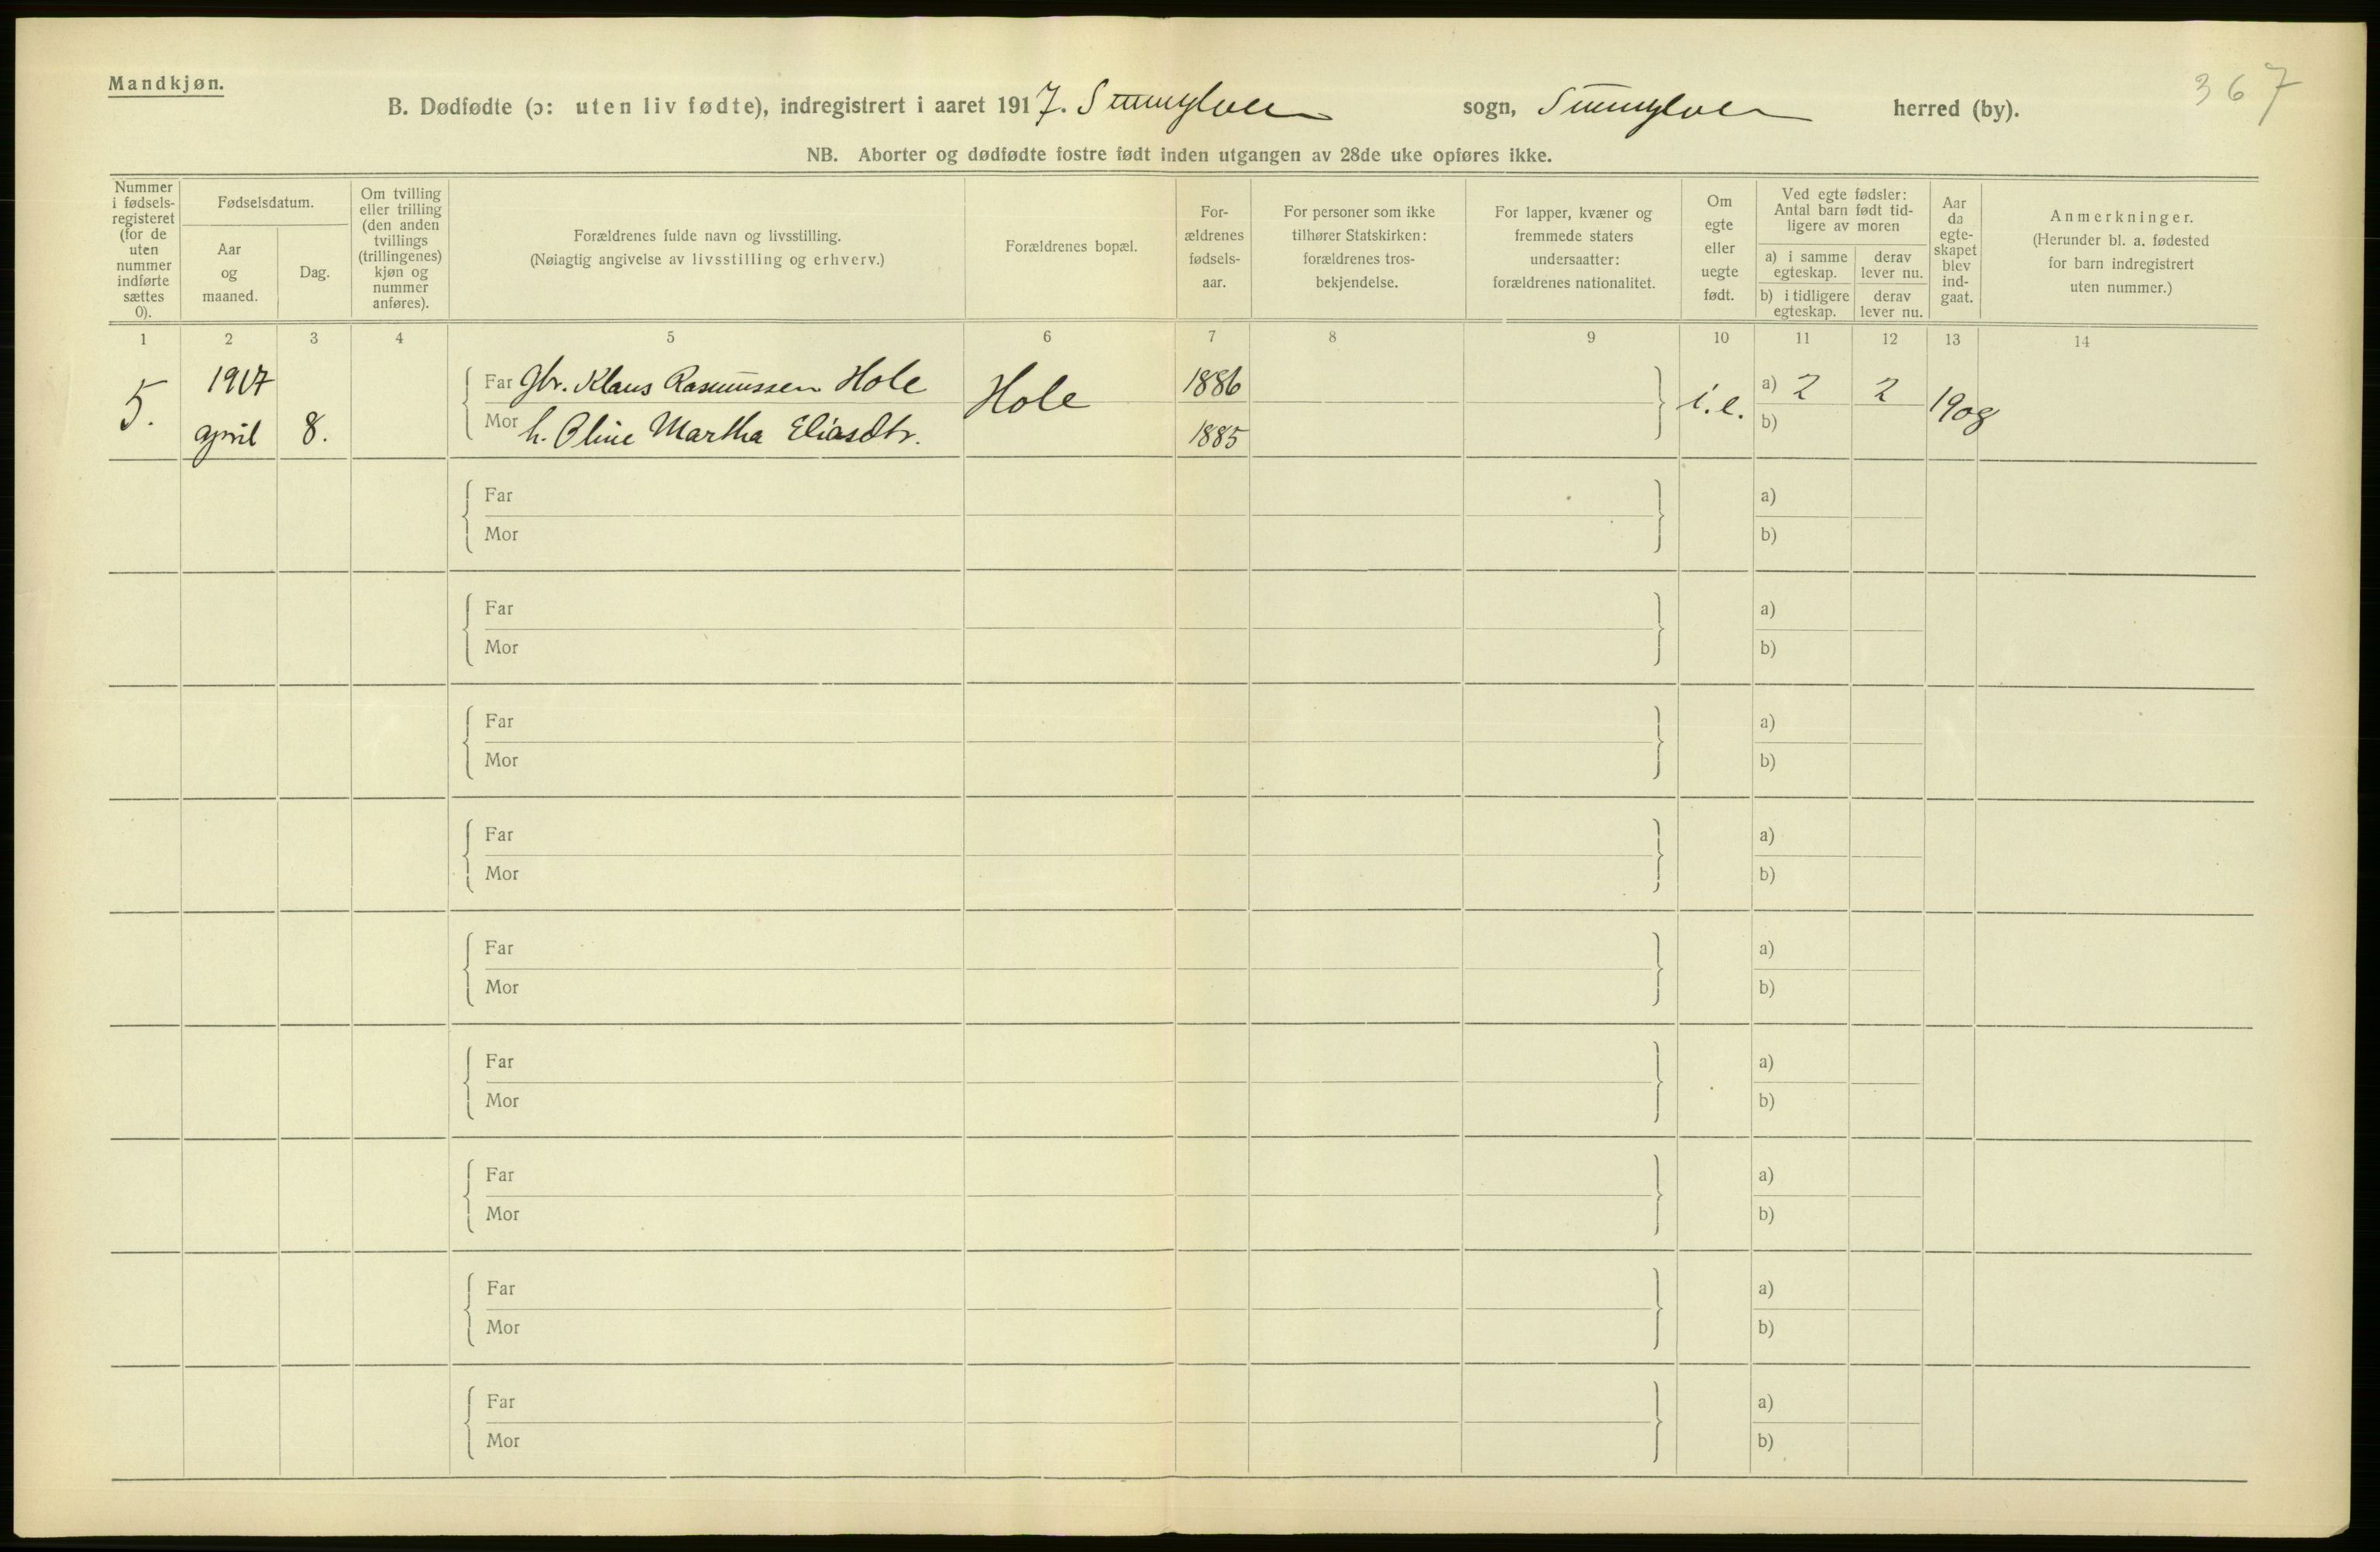 Mandkjøn.
367
B. Dødfødte (ɔ: uten liv fødte), indregistrert i aaret 1917. Sunnylven sogn, Sunnylven herred (by).
NB. Aborter og dødfødte fostre født inden utgangen av 28de uke opføres ikke.
Nummer
i fødsels-
registeret
(for de
uten
nummer
indførte
sættes
0).
Fødselsdatum.
Aar
og
maaned.
Dag.
Om tvilling
eller trilling
(den anden
tvillings
(trillingenes)
kjøn og
nummer
anføres).
Forældrenes fulde navn og livsstilling.
(Nøiagtig angivelse av livsstilling og erhverv.)
Forældrenes bopæl.
For-
ældrenes
fødsels-
aar.
For personer som ikke
tilhører Statskirken:
forældrenes tros-
bekjendelse.
For lapper, kvæner og
fremmede staters
undersaatter:
forældrenes nationalitet.
Om
egte
eller
uegte
født.
Ved egte fødsler:
Antal barn født tid-
ligere av moren
a) i samme
egteskap.
derav
lever nu.
b) i tidligere
egteskap.
derav
lever nu.
Aar
da
egte-
skapet
blev
ind-
gaat.
Anmerkninger.
(Herunder bl. a. fødested
for barn indregistrert
uten nummer.)
1 2 3 4 5 6 7 8 9 10 11 12 13 14
5.
1917
april 8.
Far Gbr. Klaus Rasmussen Hole
Mor h. Oline Martha Eliasdtr.
Hole
1886
1885
i.e.
a) 2 2
b)
1908
Far a)
Mor b)
Far a)
Mor b)
Far a)
Mor b)
Far a)
Mor b)
Far a)
Mor b)
Far a)
Mor b)
Far a)
Mor b)
Far a)
Mor b)
Far a)
Mor b)